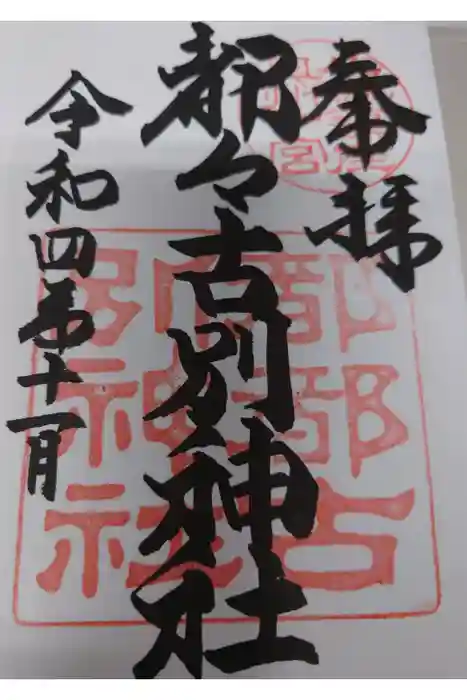 奉拝
都々古別神社
令和四年十一月
都都古
別神社